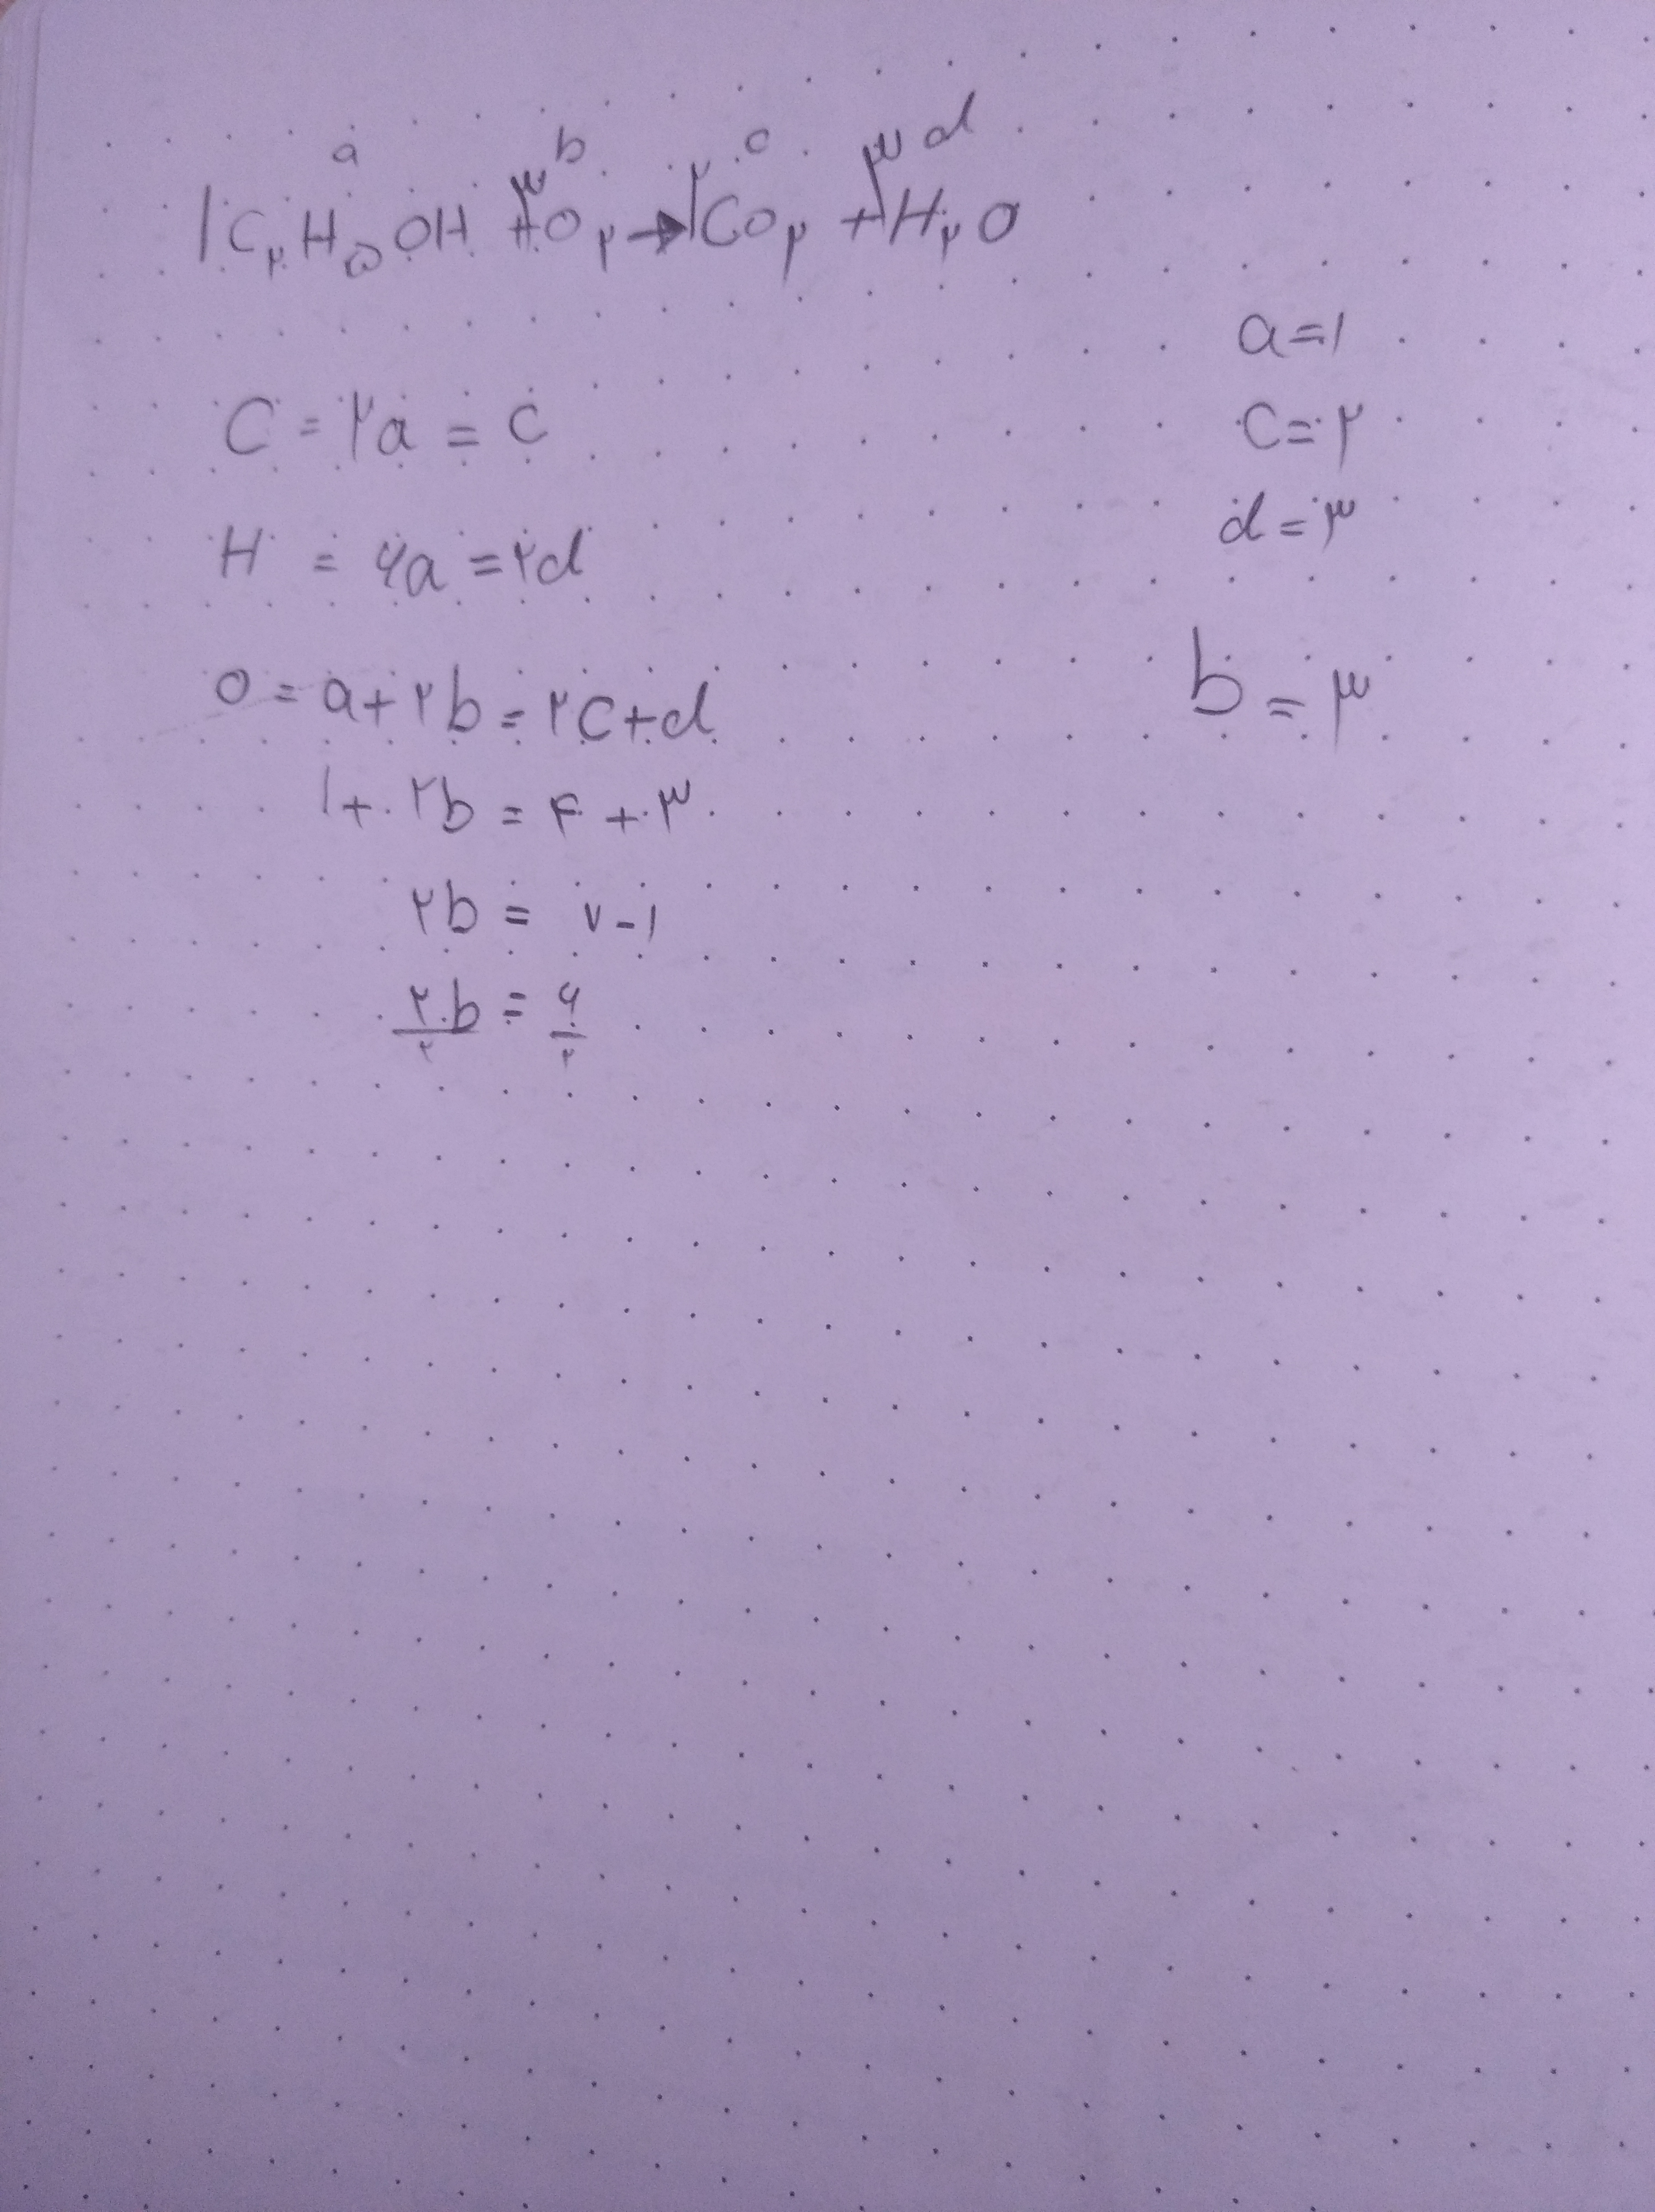 a b c d
۱C۲H۵OH + ۳O۲ → ۲CO۲ + ۳H۲O
a=۱
C = ۲a = c
c=۲
H = ۶a = ۲d
d=۳
O = a+۲b = ۲c+d
b=۳
۱+۲b = ۴+۳
۲b = ۷-۱
۲b/۲ = ۶/۲